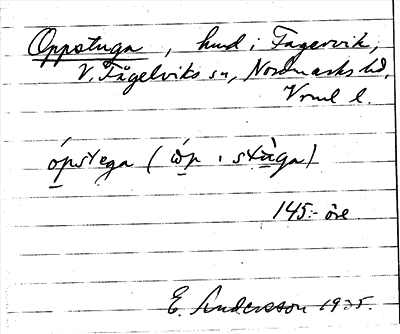 Oppstuga, hmd i Fagervik,
V. Fågelviks sn, Nordmarks hd,
Vrml l.
ópstega (
145:- öre
E Andersson 1925.